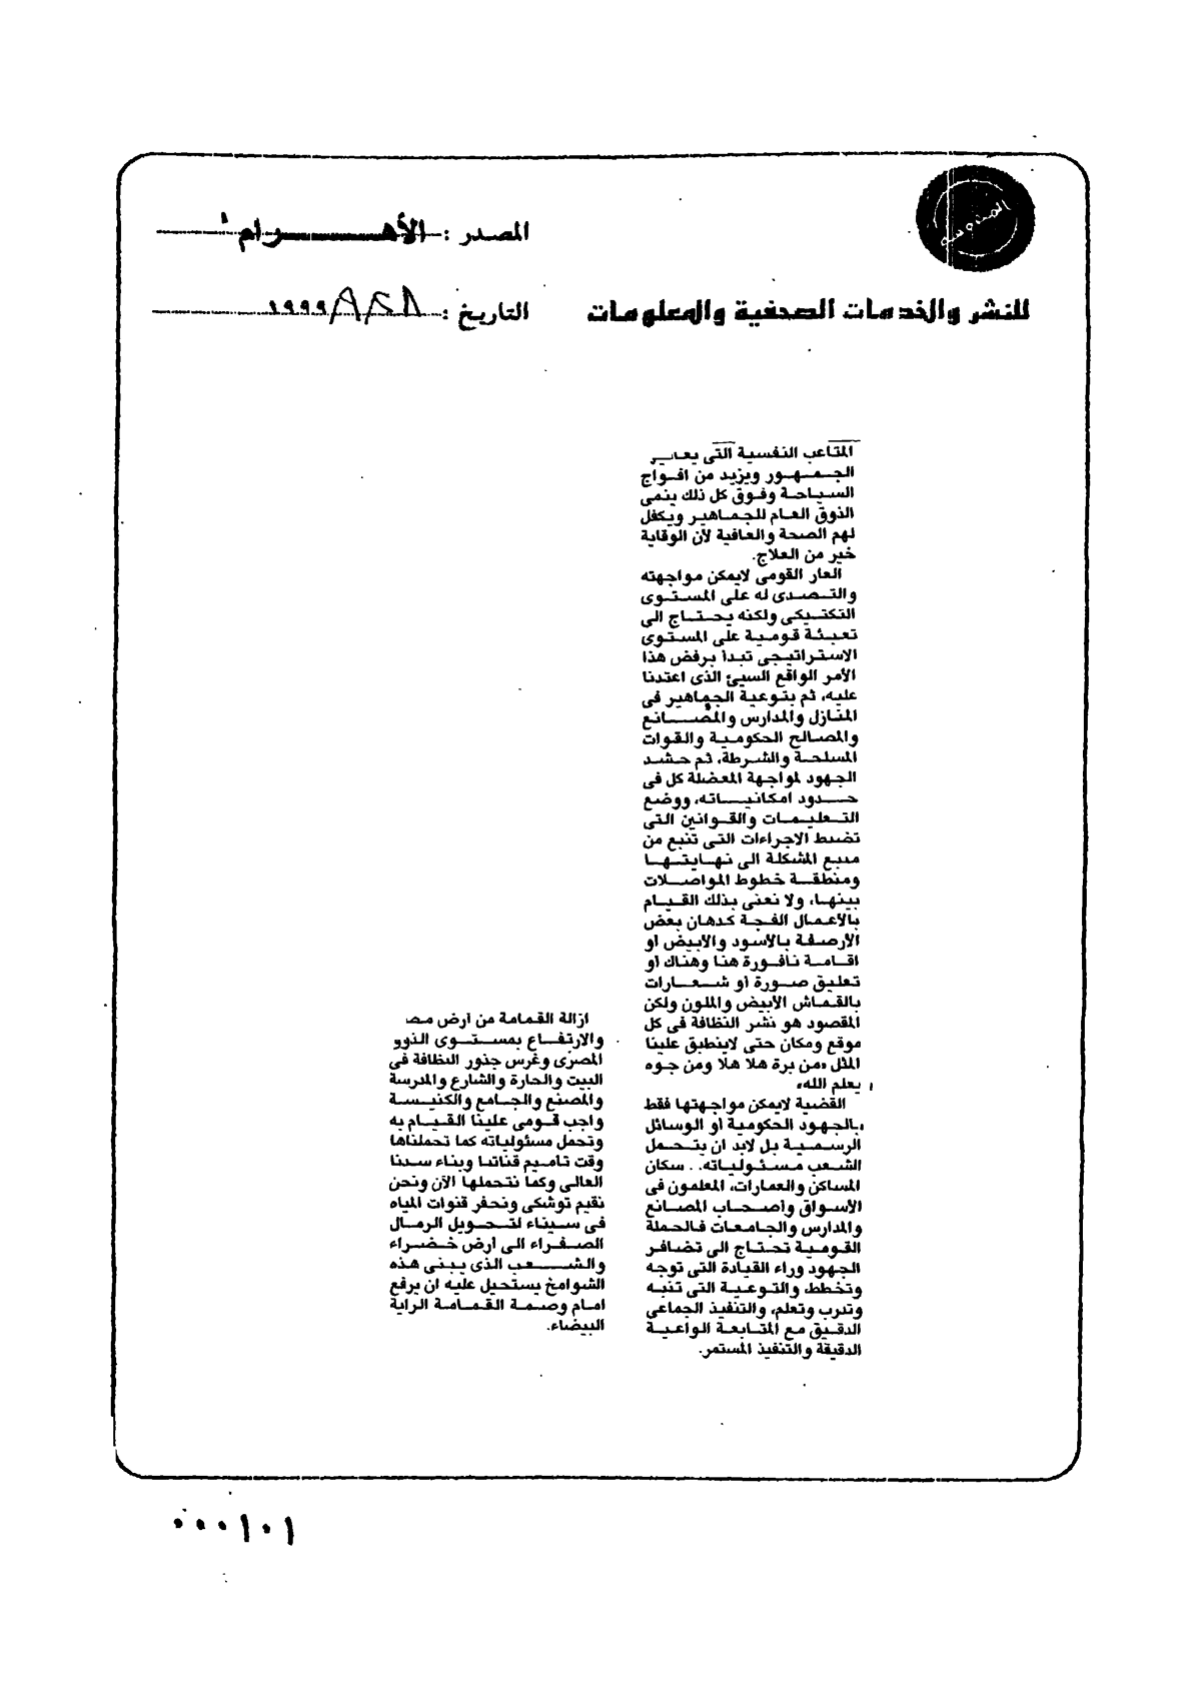 المصدر : الأهـــرام
للنشر والخدمات الصحفية والمعلومات
التاريخ : ١٩٩٩/٨/٢٨
المتاعب النفسية التى
الجمهور ويزيد من افواج
السياحة وفوق كل ذلك ينمى
الذوق العام للجماهير ويكفل
لهم الصحة والعافية لأن الوقاية
خير من العلاج.
العار القومى لايمكن مواجهته
والتصدى له على المستوى
التكتيكى ولكنه يحتاج الى
تعبئة قومية على المستوى
الاستراتيجى تبدا برفض هذا
الأمر الواقع السيئ الذى اعتدنا
عليه، ثم بتوعية الجماهير فى
المنازل والمدارس والمصانع
والمصالح الحكومية والقوات
المسلحة والشرطة، ثم حشد
الجهود لمواجهة المعضلة كل فى
حدود امكانياته، ووضع
التعليمات والقوانين التى
تضبط الاجراءات التى تنبع من
منبع المشكلة الى نهايتها
ومنطقة خطوط المواصلات
بينها، ولا نعنى بذلك القيام
بالأعمال الفجة كدهان بعض
الأرصفة بالأسود والابيض او
اقامة نافورة هنا وهناك او
تعليق صورة او شعارات
بالقماش الأبيض والملون ولكن
المقصود هو نشر النظافة فى كل
موقع ومكان حتى لاينطبق علينا
المثل «من برة هلا هلا ومن جوه
يعلم الله»
القضية لايمكن مواجهتها فقط
بالجهود الحكومية او الوسائل
الرسمية بل لابد ان يتحمل
الشعب مسئولياته.. سكان
المساكن والعمارات، المعلمون فى
الأسواق واصحاب المصانع
والمدارس والجامعات فالحملة
القومية تحتاج الى تضافر
الجهود وراء القيادة التى توجه
وتخطط، والتوعية التى تنبه
وتدرب وتعلم، والتنفيذ الجماعى
الدقيق مع المتابعة الواعية
الدقيقة والتنفيذ المستمر.
ازالة القمامة من ارض
والارتفاع بمستوى
المصرى وغرس جذور النظافة فى
البيت والحارة والشارع والمدرسة
والمصنع والجامع والكنيسة
واجب قومى علينا القيام به
وتحمل مسئولياته كما تحملناها
وقت تاميم قناتنا وبناء سدنا
العالى وكما نتحملها الآن ونحن
نقيم توشكى ونحفر قنوات المياه
فى سيناء لتحويل الرمال
الصفراء الى ارض خضراء
والشعب الذى يبنى هذه
الشوامخ يستحيل عليه ان يرفع
امام وصمة القمامة الراية
البيضاء.
٠٠٠١٠١